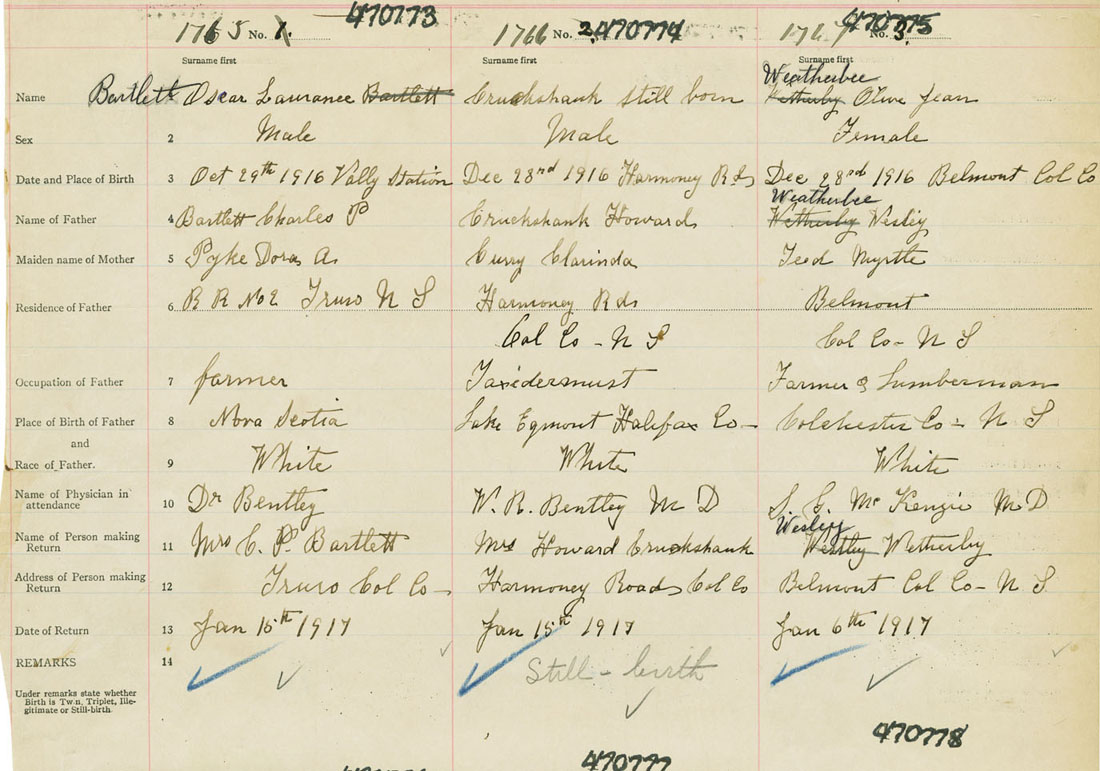 470773 470774 470775
1765 No. 1. 1766 No. 2. 1767 No. 3.
Surname first Surname first Surname first
Weatherbee
Name Bartlett Oscar Laurance Bartlett Cruckshank Still born Wetherby Olive Jean
Sex 2 Male Male Female
Date and Place of Birth 3 Oct 29th 1916 Vally Station Dec 28rd 1916 Harmoney Rds Dec 28rd 1916 Belmont Col Co
Weatherbee
Name of Father 4 Bartlett Charles P Cruckshank Howard Wetherby Wesley
Maiden name of Mother 5 Pyke Dora A. Curry Clarinda Teed Myrtle
Residence of Father 6 R R No 2 Truro N S Harmoney Rds Belmont
Col Co - N S Col Co - N S
Occupation of Father 7 farmer Taxidermust Farmer & Lumberman
Place of Birth of Father 8 Nova Scotia Lake Egmont Halifax Co - Colchester Co - N S
and
Race of Father. 9 White White White
Name of Physician in attendance 10 Dr Bentley W. R. Bentley M D S. G. Mc Kenzie M D
Wesley
Name of Person making Return 11 Mrs C. P. Bartlett Mrs Howard Cruckshank Westley Wetherby
Address of Person making Return 12 Truro Col Co - Harmoney Roads Col Co Belmont Col Co - N S
Date of Return 13 Jan 15th 1917 Jan 15th 1917 Jan 6th 1917
REMARKS 14 Still - birth
Under remarks state whether
Birth is Twn, Triplet, Ille-
gitimate or Still-birth.
470778
470777